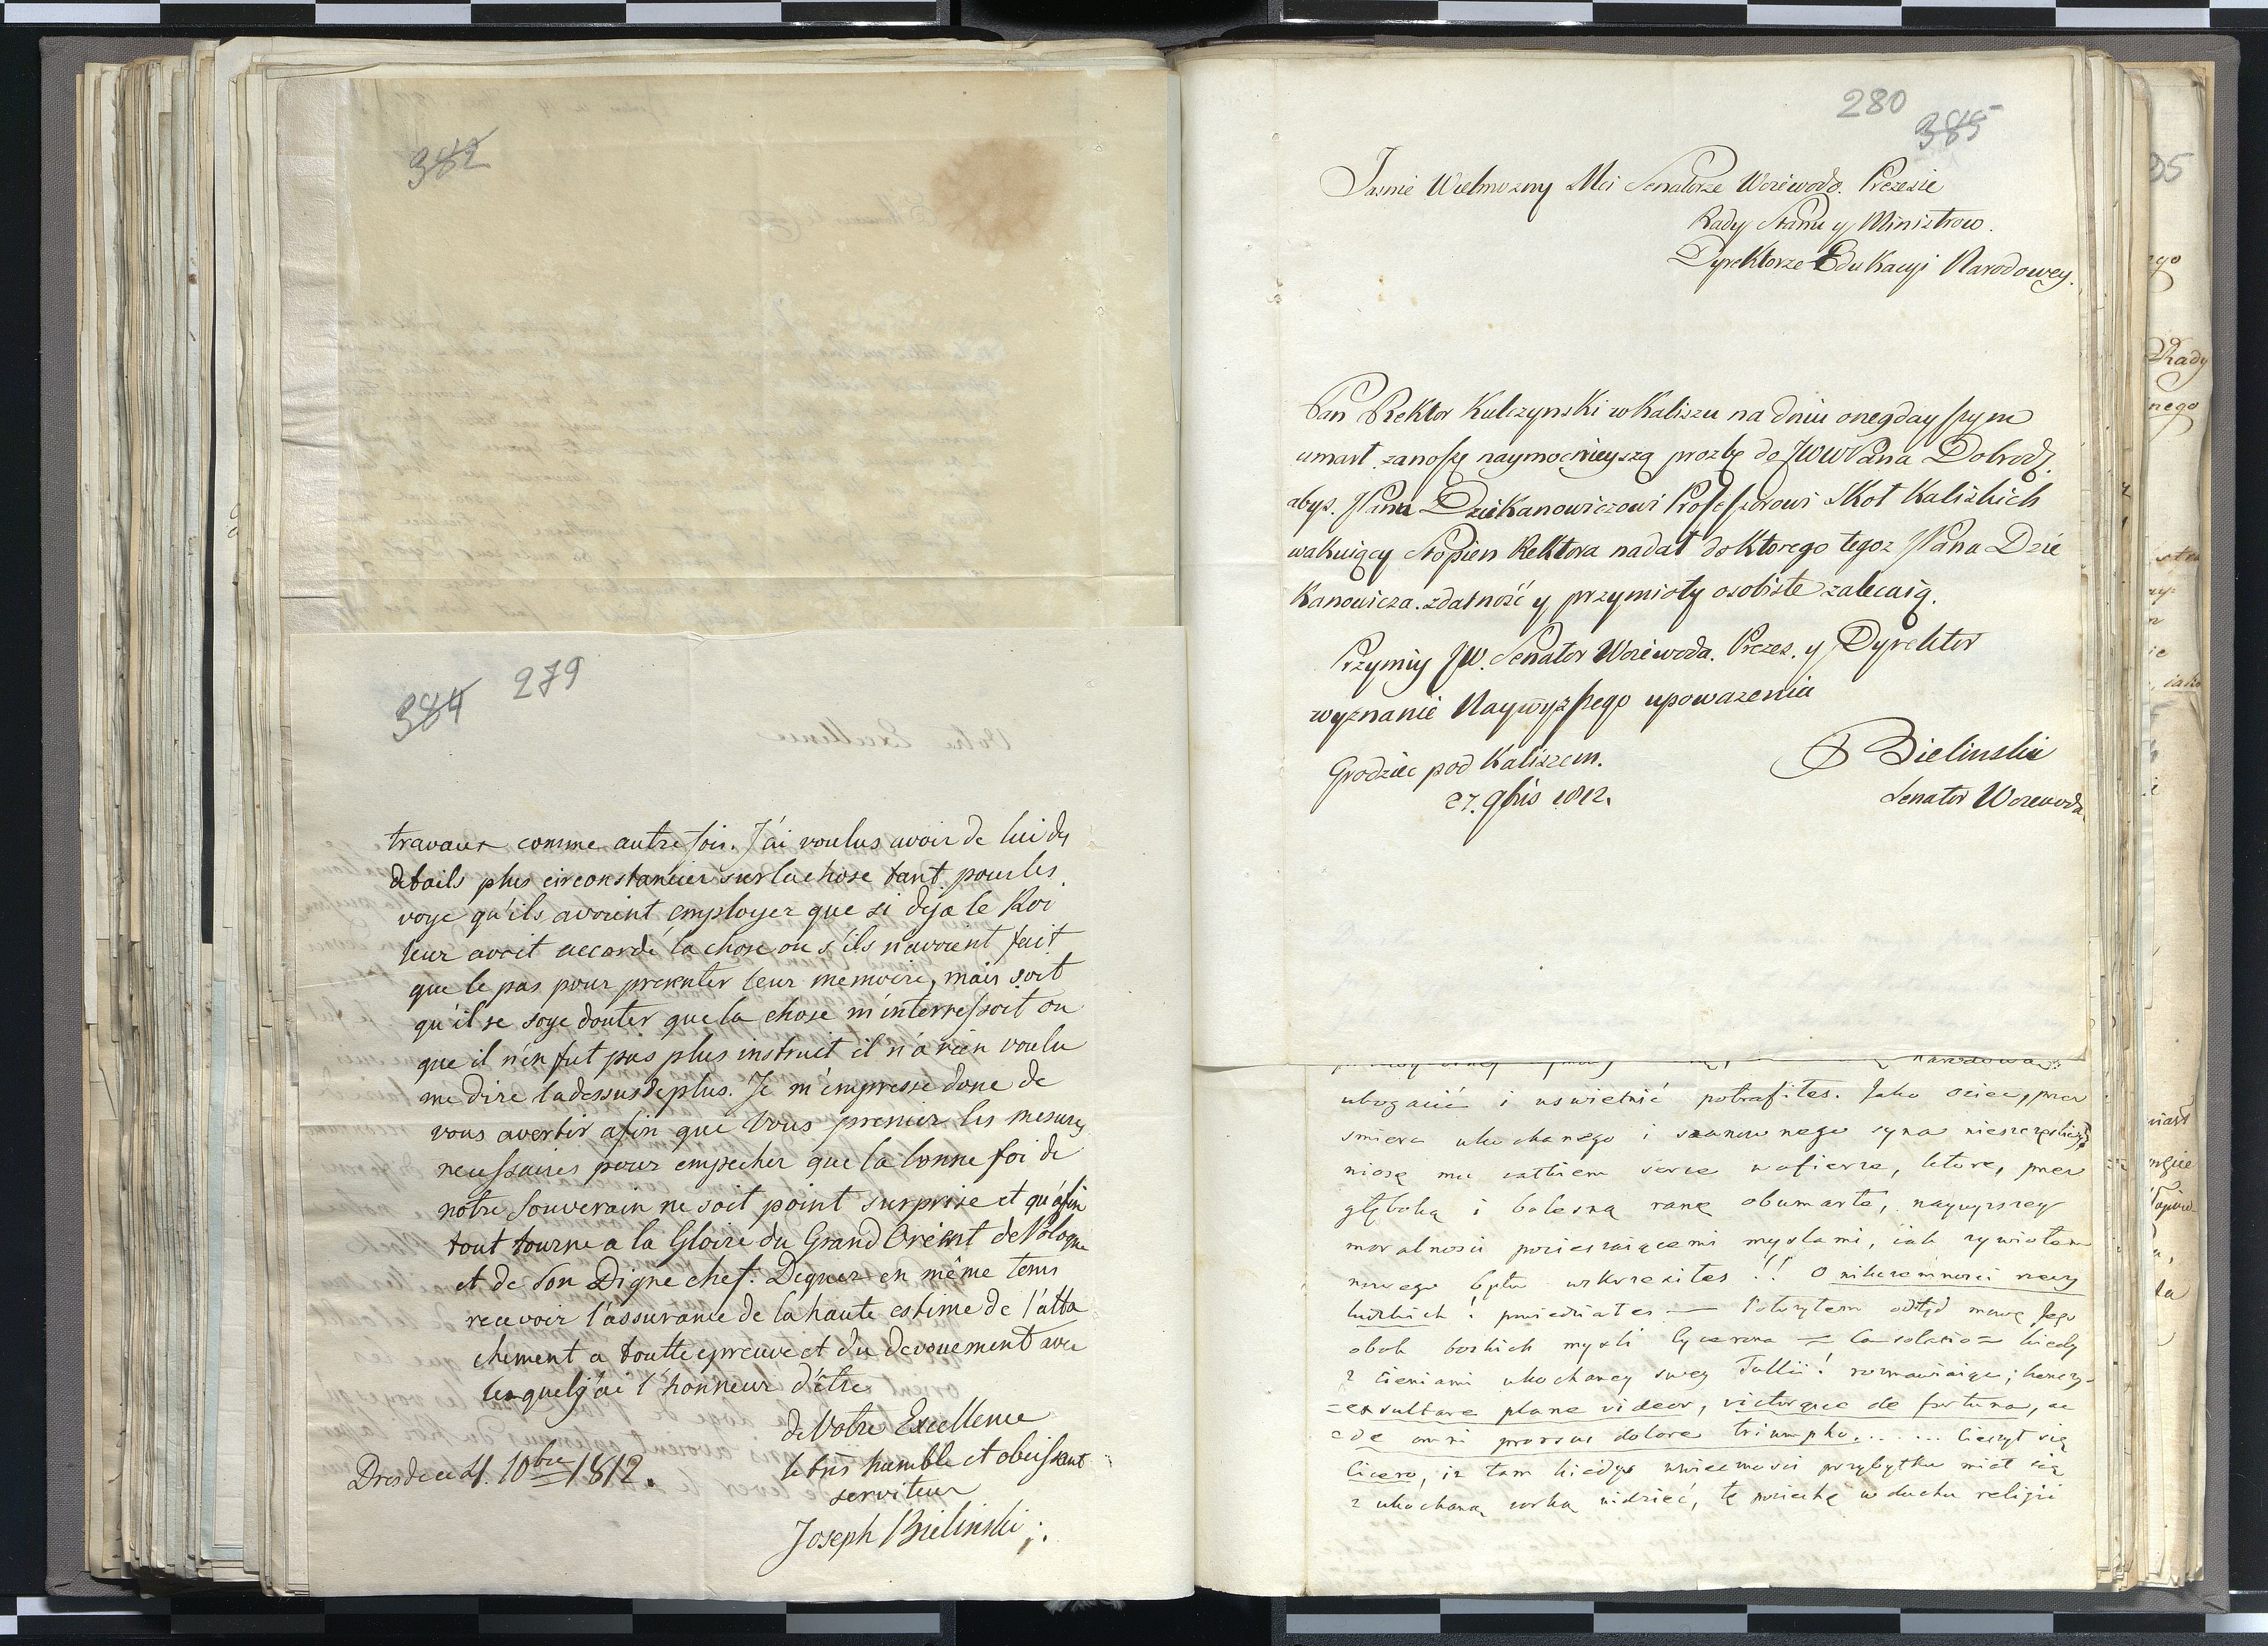 382
384 279
travaux comme autre fois. J'ai voulus avoir de lui des
details plus circonstancier sur la chose tant pour les
voye qu'ils avoient employer que si deja le Roi
leur avoit accordé la chose ou s'ils n'avoient fait
que le pas pour presenter leur memoire, mais soit
qu'il se soye douter que la chose m'interressoit ou
que il n'en fut pas plus instruit il n'a rien voulu
me dire la dessus de plus. Je m'empresse donc de
vous avertir afin que Vous preniez les mesures
necessaires pour empecher que la bonne foi de
notre Souverain ne soit point surprise et qu'afin
tout tourne a la Gloire du Grand Orient de Pologne
et de Son Digne chef. Degnez en même tems
recevoir l'assurance de la haute estime de l'atta
chement a toutte epreuve et du devouement avec
lesquels j'ai l'honneur d'être
de Votre Excellence
le trés humble et obeissant
serviteur
Joseph Bielinski
Dresde ce 4. 10bre 1812.
280
385
Jasnie Wielmozny Mci Senatorze Woiewodo. Prezesie
Rady Stanu y Ministrow.
Dyrektorze Edukacyi Narodowey.
Pan Rektor Kulczynski w Kaliszu na dniu onegdayszym
umarł. zanoszę naymocnieyszą prozbę do JWWPana Dobrodz.
abys. JPanu Dziekanowiczowi Professorowi Skoł Kaliskich
wakuiący Stopien Rektora nadał do ktorego tegoz JPana Dzie
kanowicza. zdatność y przymioty osobiste zalecaią.
Przymiy JW. Senator Woiewoda. Prezes. y Dyrektor
wyznanie Naywyzszego upowazenia
Grodziec pod Kaliszem.
27. 9bris 1812.
Bielinski
Senator Woiewoda
narodową:
ubogacić i uswietnić potrafiłes. Jako ociec, przez
smierc ukochanego i szanownego syna nieszczęsliwy,
niosę mu całkiem serce w ofierze, które, przez
głęboką i bolesną ranę obumarłe, naywyzszey
moralnosci pocieszaiącemi myslami, iak zywiołem
nowego bytu wskrzesiłes!! O nikczemnosci rzeczy
ludzkich! powiedziałes — Połozyłem odtąd mowę Jego
obok boskich mysli Cycerona = Consolatio = kiedy
z cieniami ukochaney swey Tullii! rozmawiaiąc; konczy-
=exsultare plane videor, victorque de fortuna, ac
=de omni prorsus dolore triumpho...... Cieszył się
Cicero, iz tam kiedys w wiecznosci przybytku miał się
z ukochaną corką widzieć, tę pociechę w duchu religii